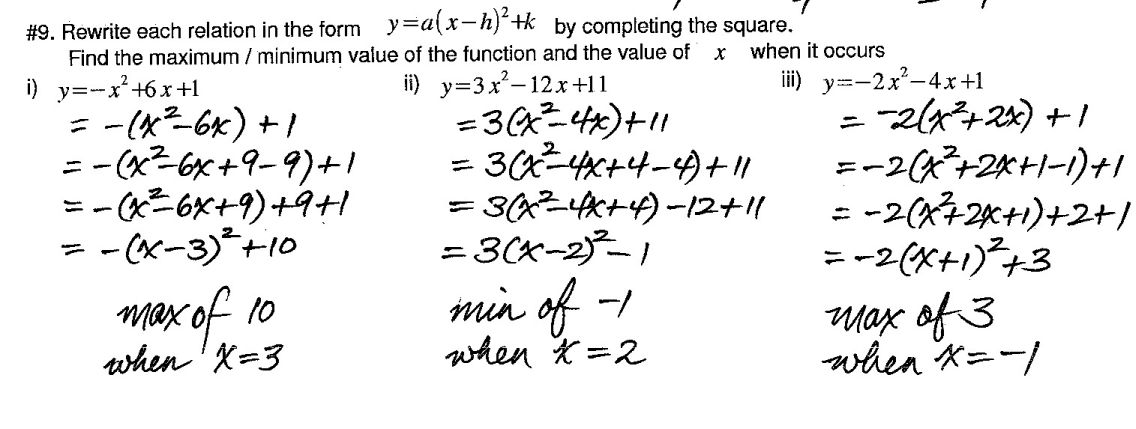 #9. Rewrite each relation in the form y=a(x-h)²+k by completing the square.
Find the maximum / minimum value of the function and the value of x when it occurs
i) y=-x²+6x+1
= -(x²-6x)+1
= -(x²-6x+9-9)+1
= -(x²-6x+9)+9+1
= -(x-3)²+10
max of 10
when x=3
ii) y=3x²-12x+11
=3(x²-4x)+11
= 3(x²-4x+4-4)+11
= 3(x²-4x+4)-12+11
=3(x-2)²-1
min of -1
when x=2
iii) y=-2x²-4x+1
= -2(x²+2x)+1
=-2(x²+2x+1-1)+1
= -2(x²+2x+1)+2+1
= -2(x+1)²+3
max of 3
when x=-1